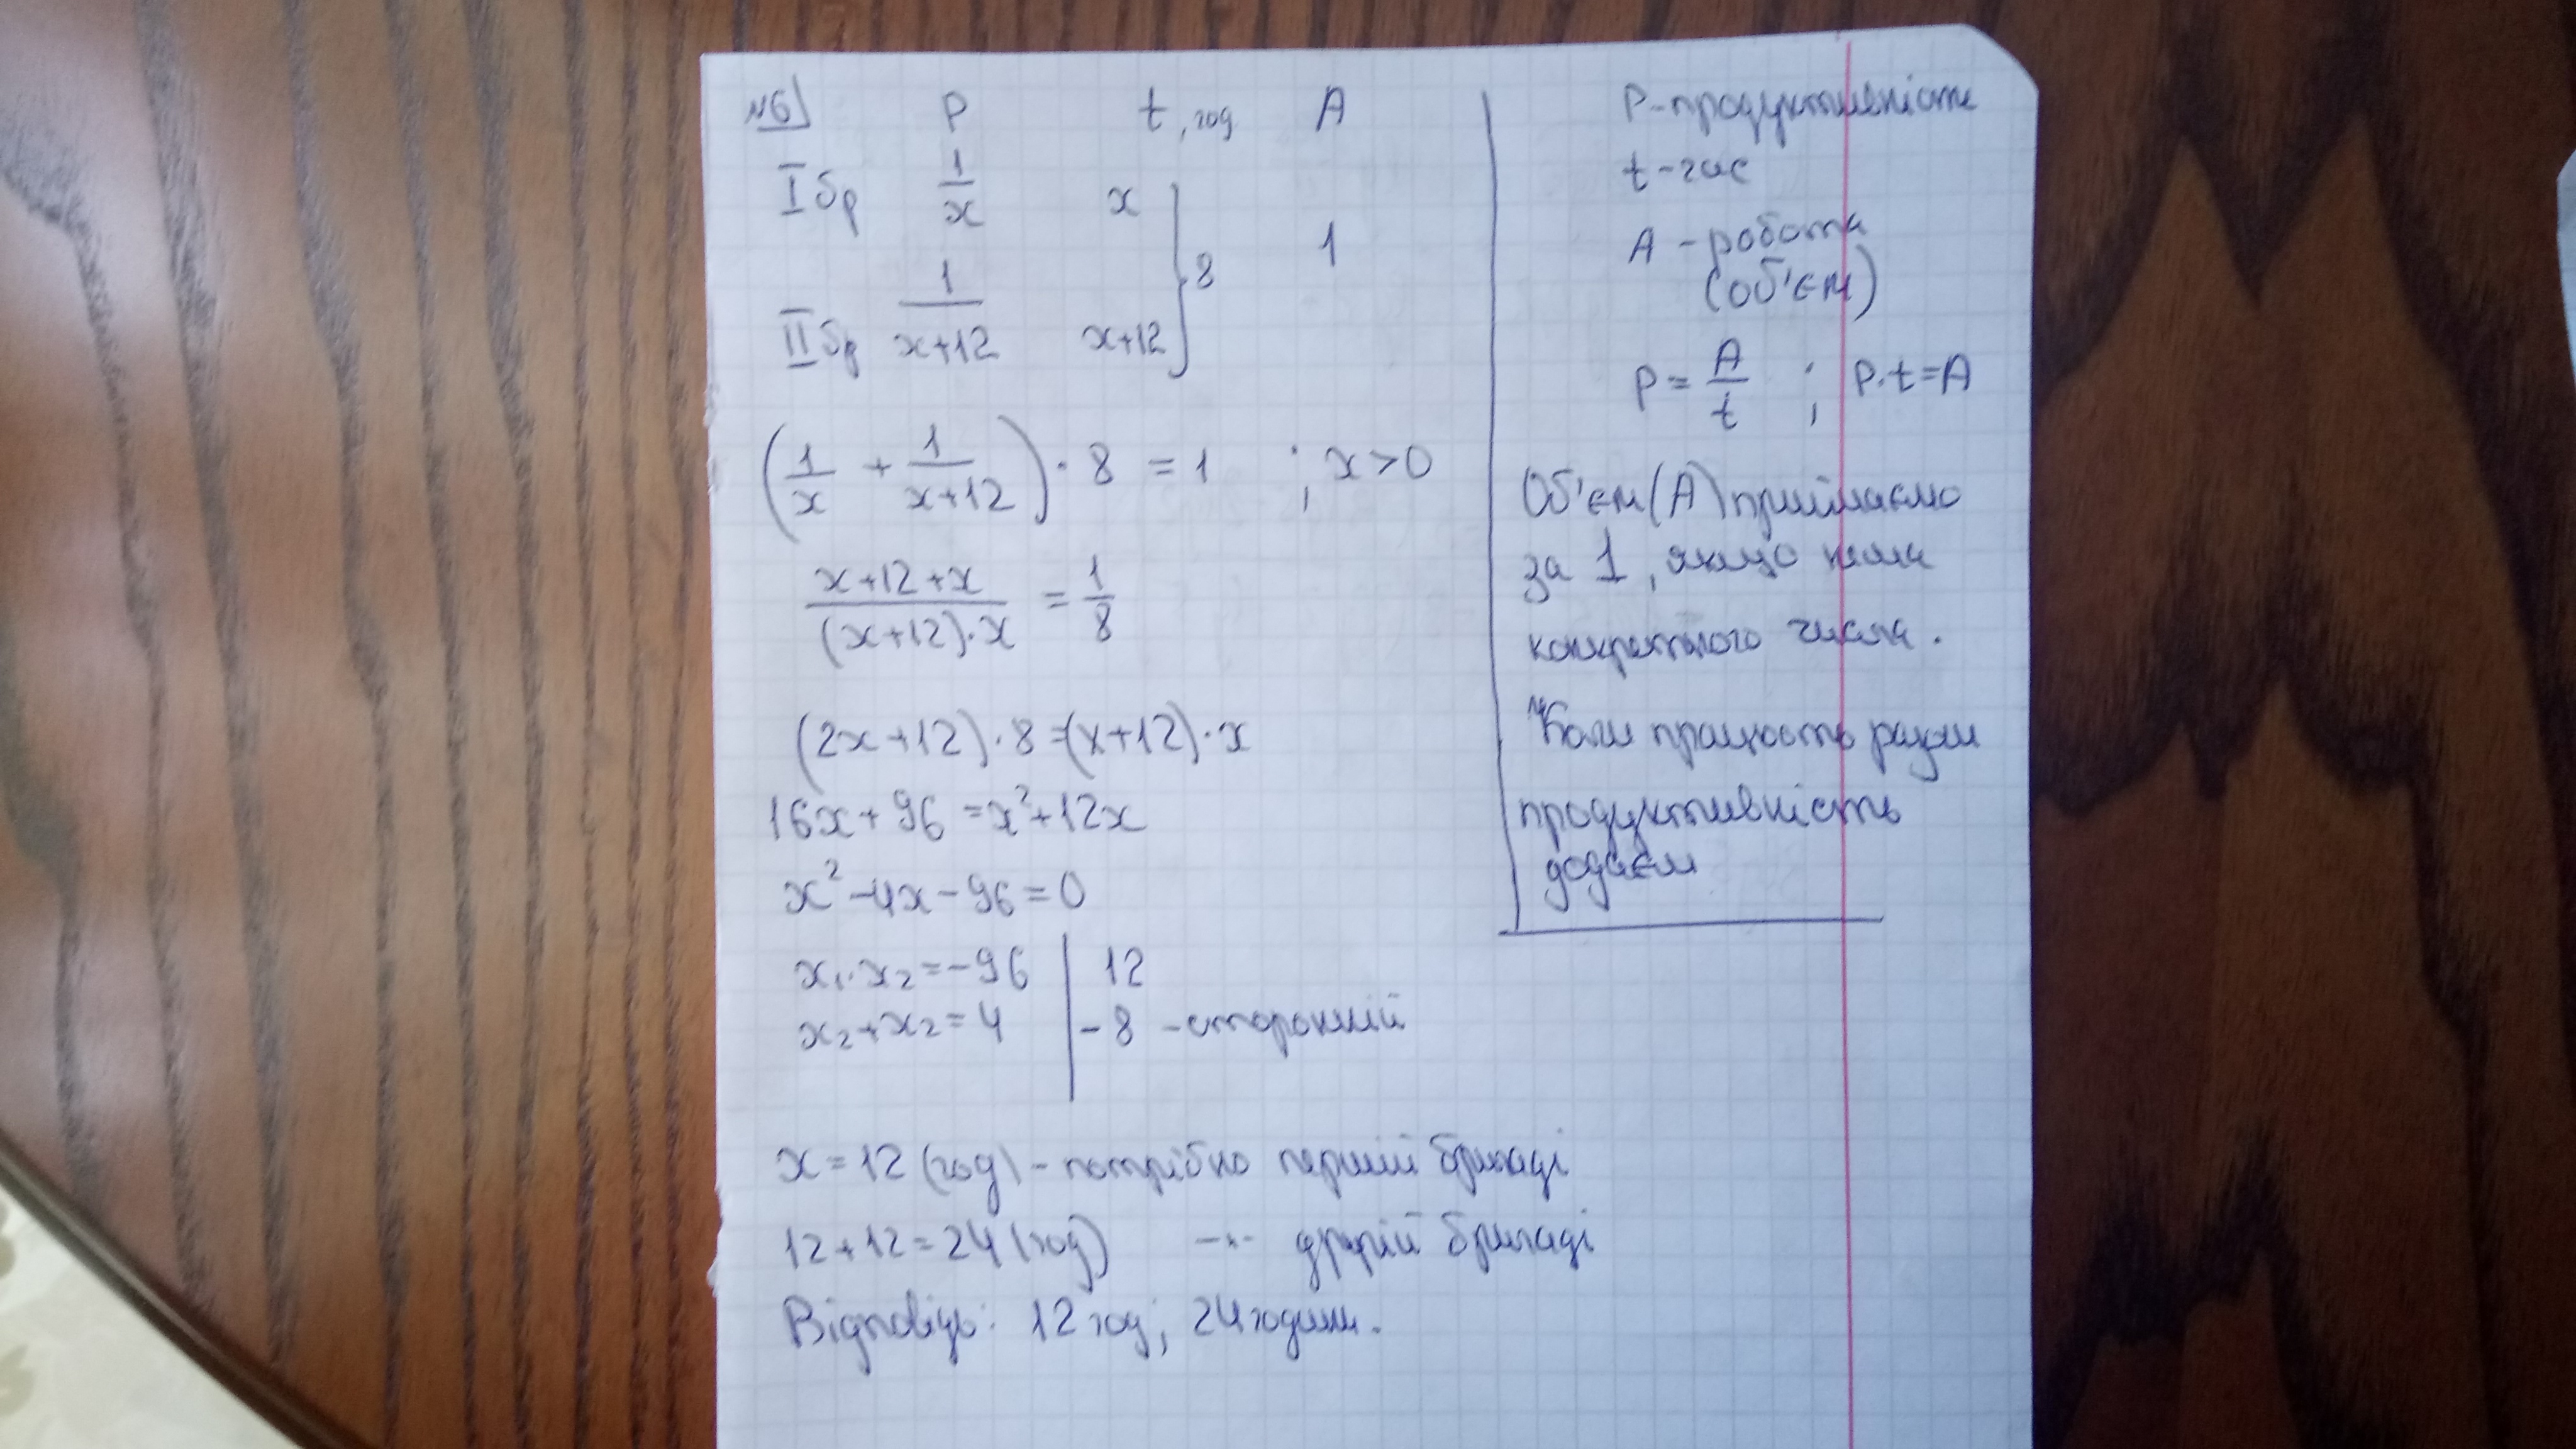 №6
P t, год A
I бр 1/x x
8 1
II бр 1/(x+12) x+12
(1/x + 1/(x+12)) · 8 = 1 ; x>0
(x+12+x)/((x+12)·x) = 1/8
(2x+12)·8=(x+12)·x
16x+96=x²+12x
x²-4x-96=0
x₁·x₂=-96 | 12
x₂+x₂=4 | -8 -сторонній
x=12 (год) - потрібно першій бригаді
12+12=24 (год) -„- другій бригаді
Відповідь: 12 год; 24 години.
P-продуктивність
t-час
A-робота
(об'єм)
P=A/t ; P·t=A
Об'єм(A) приймаємо
за 1, якщо нема
конкретного числа.
Коли працюють разом
продуктивність
додаєм